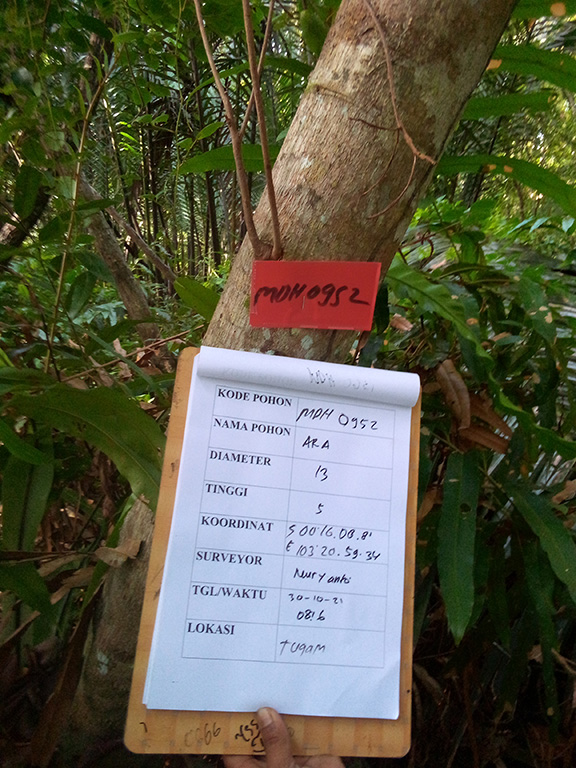 MDH 0952
KODE POHON MDH 0952
NAMA POHON ARA
DIAMETER 13
TINGGI 5
KOORDINAT S 00'16.08.8'
E 103'20.59.34
SURVEYOR Nuryanto
TGL/WAKTU 30-10-21
0816
LOKASI TUGAM